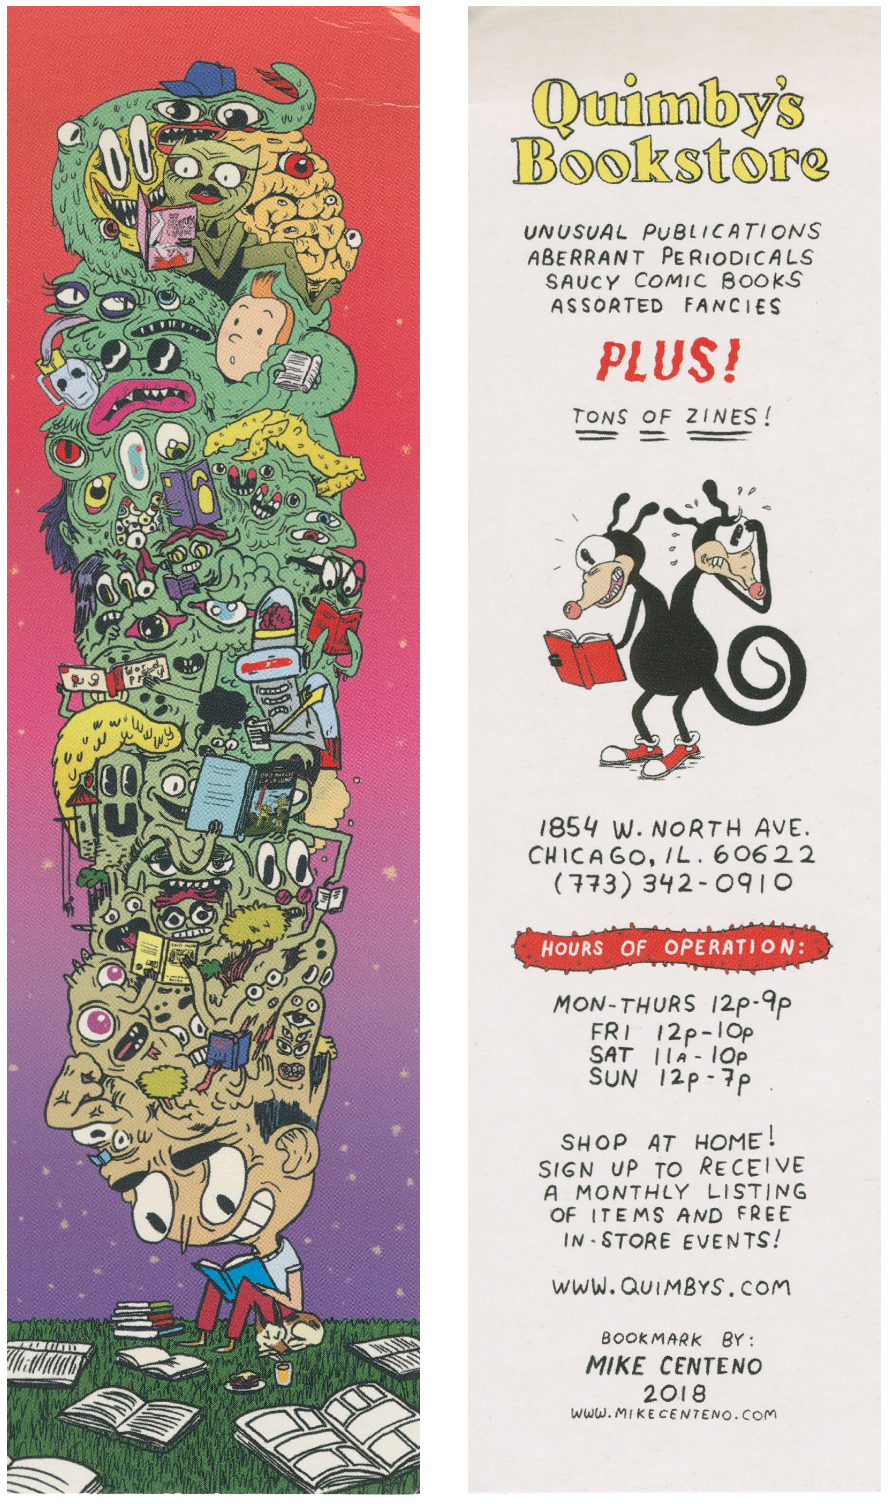 Quimby's
Bookstore
UNUSUAL PUBLICATIONS
ABERRANT PERIODICALS
SAUCY COMIC BOOKS
ASSORTED FANCIES
PLUS!
TONS OF ZINES!
1854 W. NORTH AVE.
CHICAGO, IL. 60622
(773) 342-0910
HOURS OF OPERATION:
MON-THURS 12P-9P
FRI 12P-10P
SAT 11A-10P
SUN 12P-7P
SHOP AT HOME!
SIGN UP TO RECEIVE
A MONTHLY LISTING
OF ITEMS AND FREE
IN-STORE EVENTS!
WWW.QUIMBYS.COM
BOOKMARK BY:
MIKE CENTENO
2018
WWW.MIKECENTENO.COM